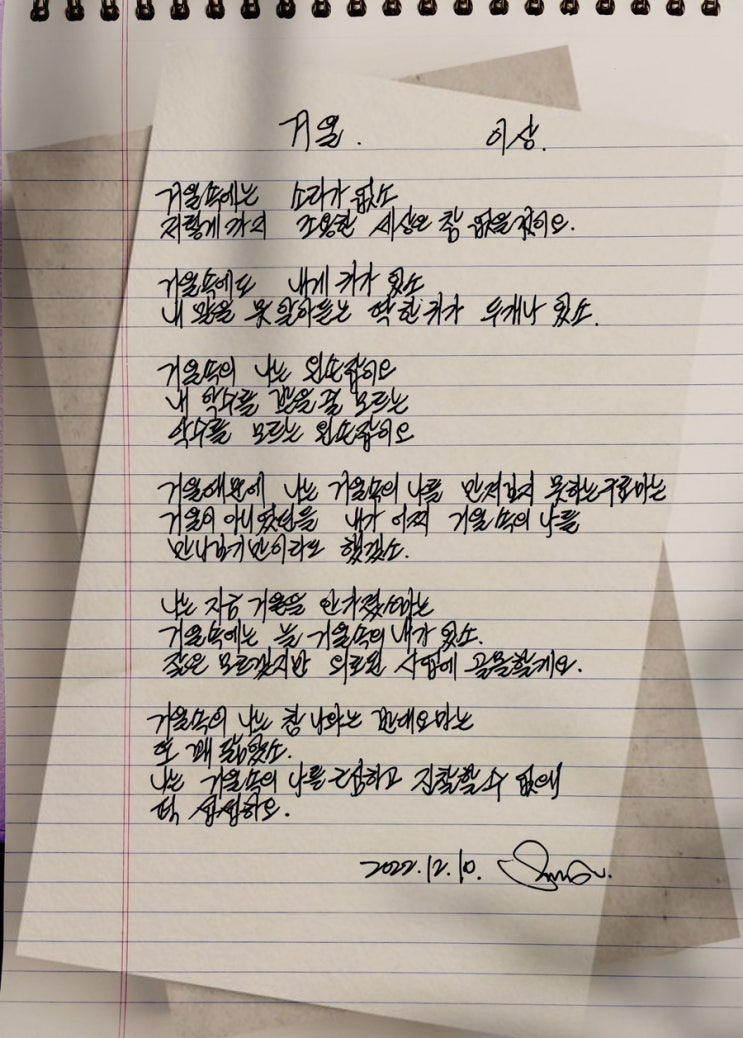 거울. 이상.
거울속에는 소리가 없소
저렇게까지 조용한 세상은 참 없을것이오.
거울속에도 내게 귀가 있소
내 말을 못 알아듣는 딱한귀가 두개나 있소.
거울속의 나는 왼손잡이오
내 악수를 받을줄 모르는
악수를 모르는 왼손잡이오
거울때문에 나는 거울속의 나를 만져보지 못하는구료마는
거울이 아니었던들 내가 어찌 거울속의 나를
만나보기만이라도 했겠소.
나는 지금 거울을 안가졌소마는
거울속에는 늘 거울속의 내가 있소.
잘은 모르겠지만 외로된 사업에 골몰할게요.
거울속의 나는 참 나와는 반대요마는
또 꽤 닮았소.
나는 거울속의 나를 근심하고 진찰할수 없으니
퍽 섭섭하오.
2022.12.10.